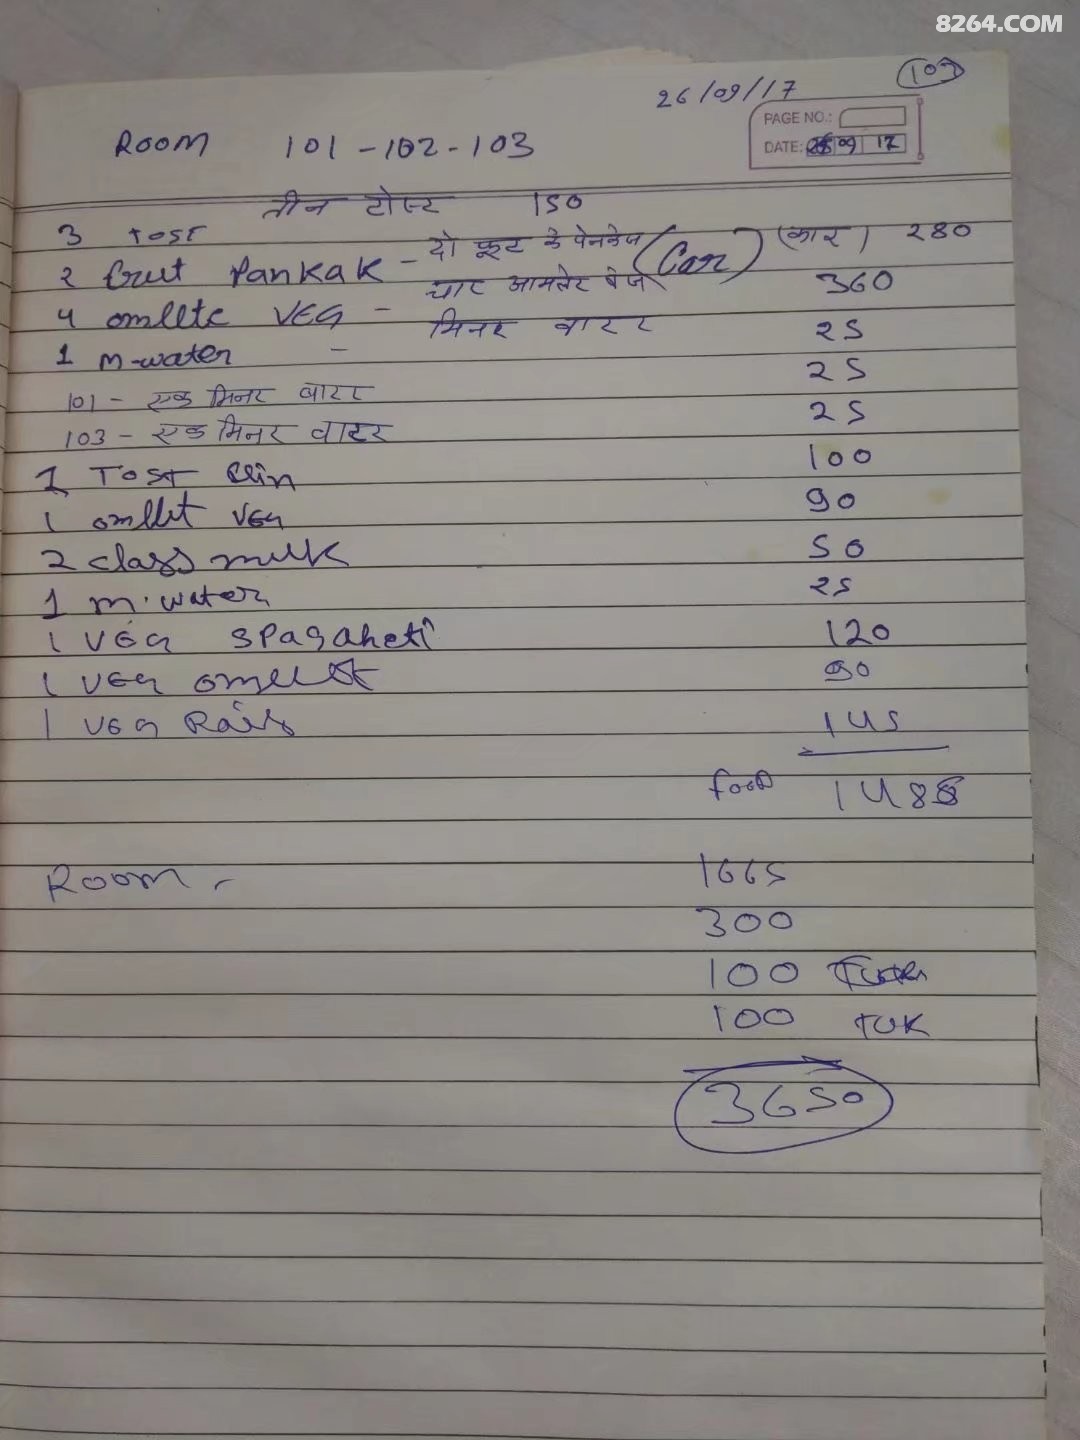 8264.COM
26/09/17
PAGE NO.:
DATE: 09 17
ROOM 101-102-103
3 TOST तीन टोस्ट 150
2 frut Pankak - दो फ्रूट के पेनकेज (Car) (कार) 280
4 omlltc VEG - चार आमलेट वेज 360
1 m-water - मिनर वाटर 25
101 - एक मिनर वाटर 25
103 - एक मिनर वाटर 25
1 TOST 100
1 omllt VEG 90
2 class milk 50
1 m.water 25
1 VEG SPagaheti 120
1 VEG 90
1 VEG Rais 145
food 1485
ROOM - 1665
300
100
100 TUK
3650